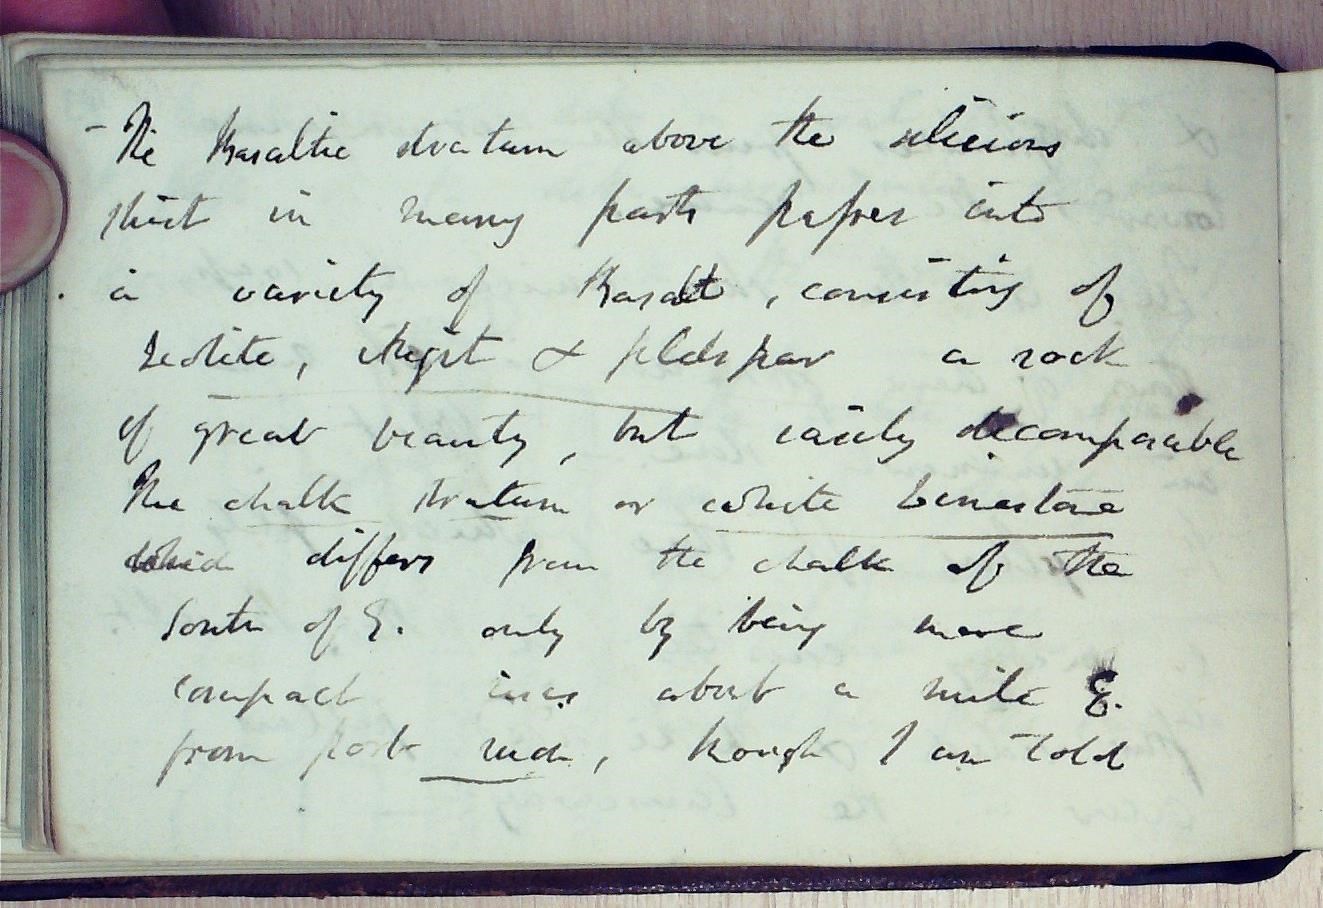 - The Basaltic stratum above the silicious
shist in many parts passes into
a variety of Basalt, consisting of
Zeolite, & feldspar a rock
of great beauty, but easily decomposible
The chalk stratum or white limestone
which differs from the chalk of the
South of E. only by being more
compact rises about a mile E.
from port rush, though I am told